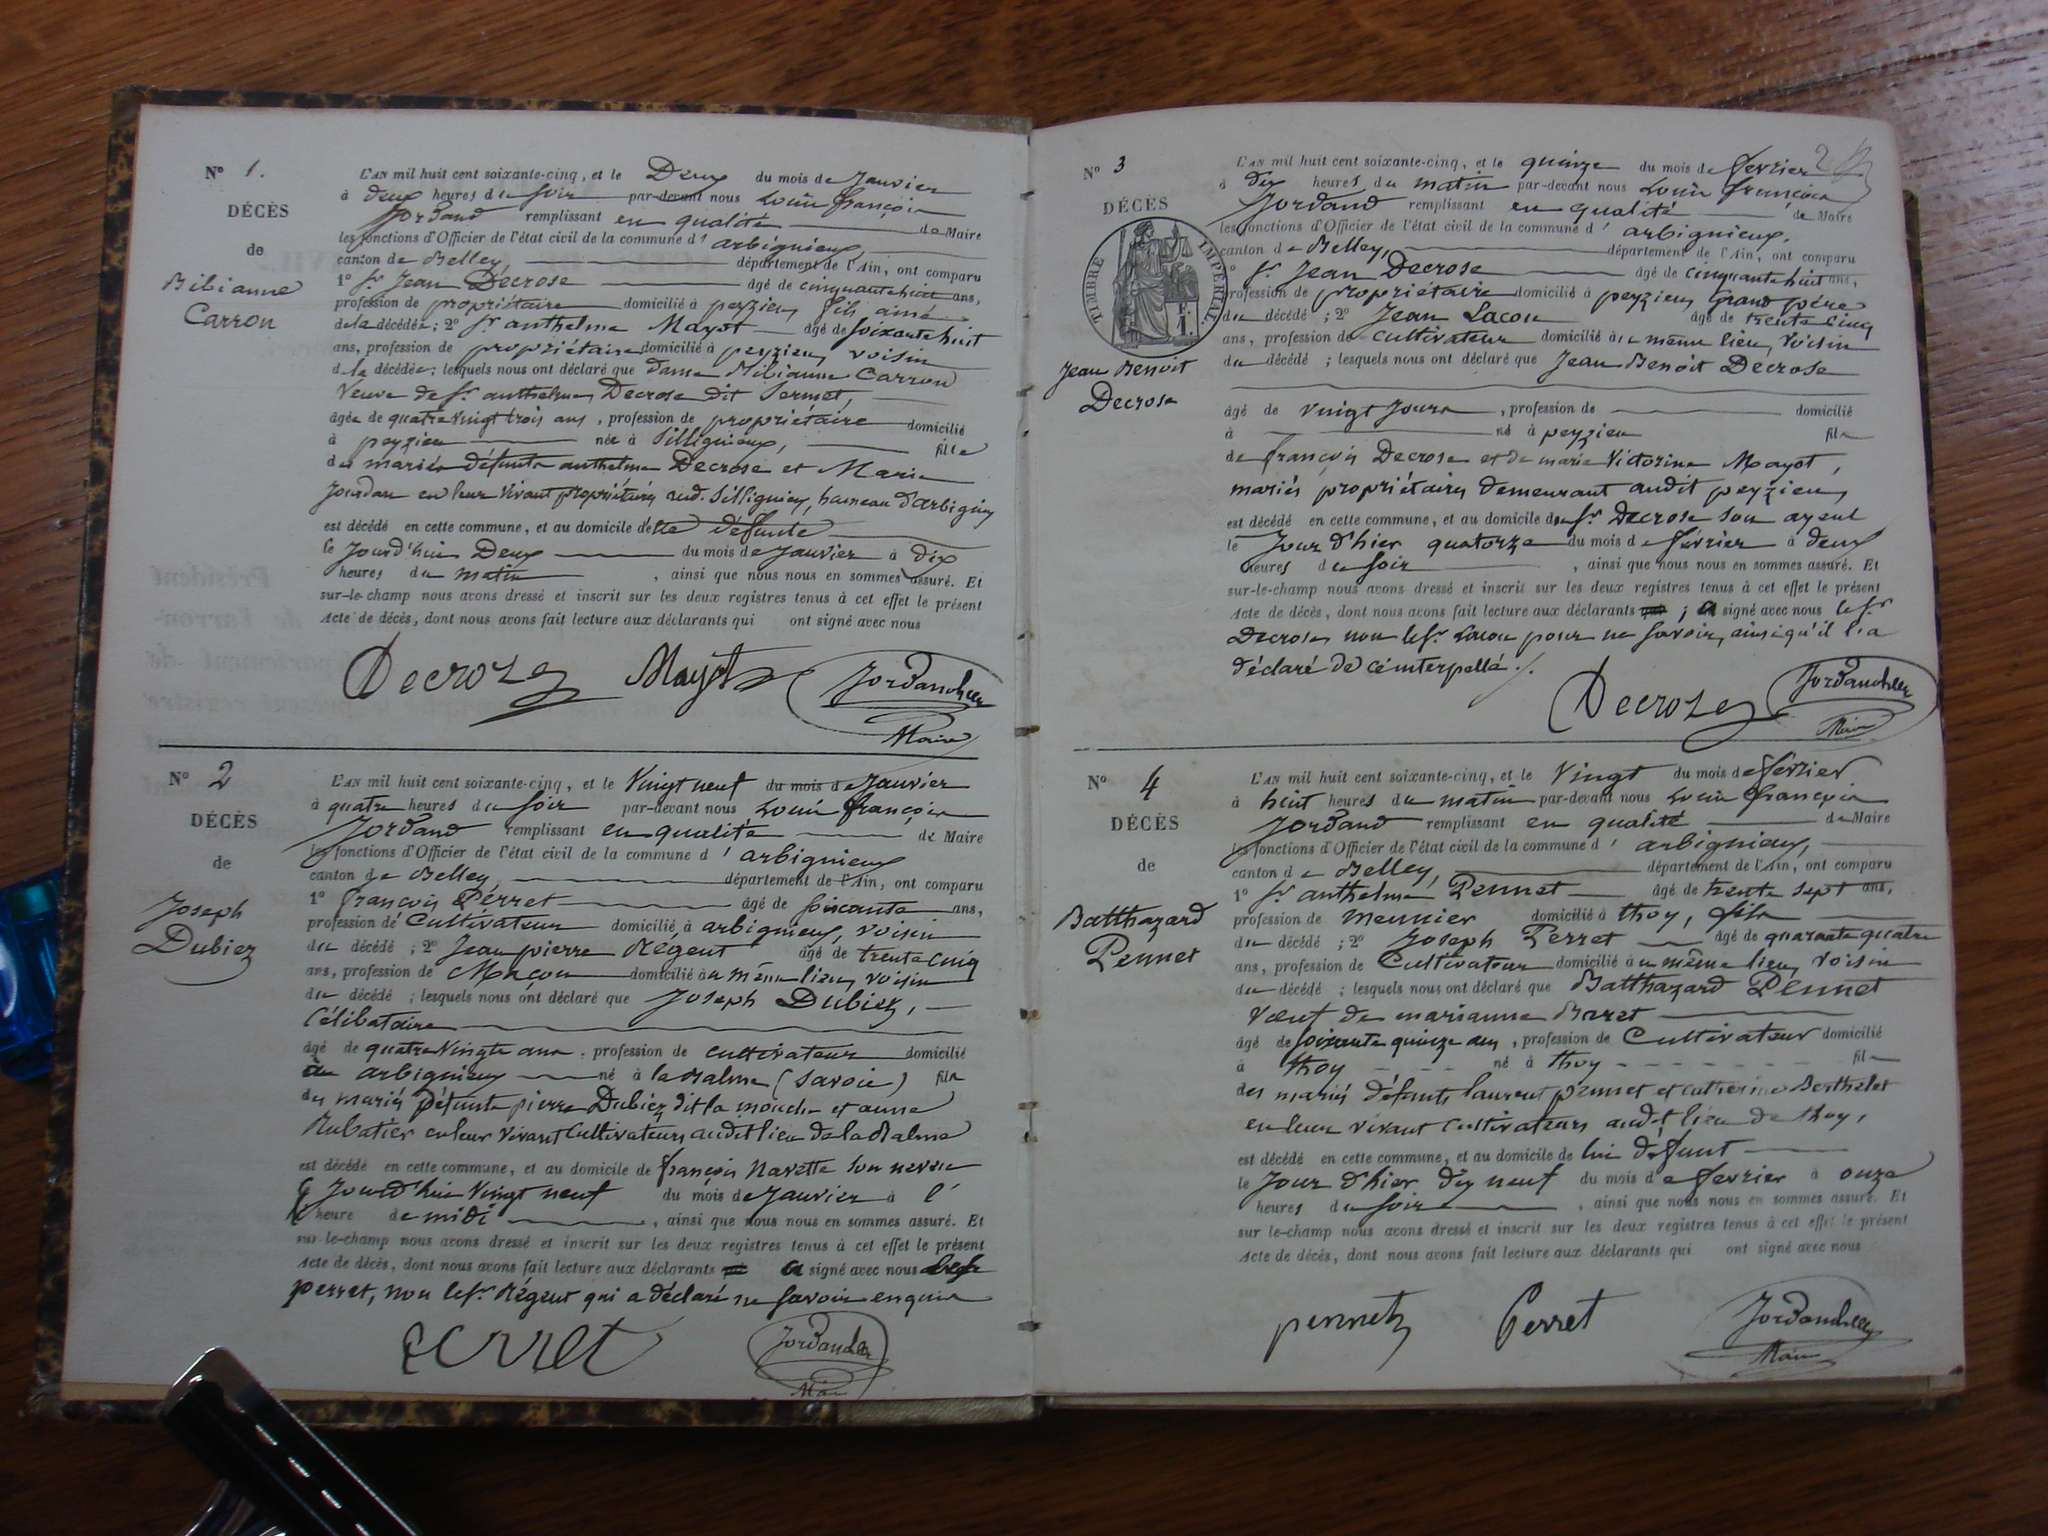 N° 1.
DÉCÈS
de
Bibianne
Carron
L'AN mil huit cent soixante-cinq, et le Deux du mois de Janvier
à deux heures du soir par-devant nous Louis françois
Jordand remplissant en qualité de Maire
les fonctions d'Officier de l'état civil de la commune d' arbignieux
canton de Belley, département de l'Ain, ont comparu
1° Sr Jean Decrose âgé de cinquante huit ans,
profession de propriétaire domicilié à peyzieu, fils ainé
de la décédée; 2° Sr anthelme Mayot âgé de soixante huit
ans, profession de propriétaire domicilié à peyzieu, voisin
de la décédée; lesquels nous ont déclaré que dame Bibianne Carron
Veuve de Sr anthelme Decrose dit Permet,
âgée de quatre vingt trois ans, profession de propriétaire domicilié
à peyzieu née à Sillignieux, fille
des mariés défunts anthelme Decrose et Marie
Jourdan en leur vivant propriétaires aud. Sillignieu, hameau d'arbignieu
est décédé en cette commune, et au domicile d'elle défunte
le Jourd'hui Deux du mois de Janvier à dix
heures du matin, ainsi que nous nous en sommes assuré. Et
sur-le-champ nous avons dressé et inscrit sur les deux registres tenus à cet effet le présent
Acte de décès, dont nous avons fait lecture aux déclarants qui ont signé avec nous
Decroze Mayot Jordand
Maire
N° 2
DÉCÈS
de
Joseph
Dubiez
L'AN mil huit cent soixante-cinq, et le Vingt neuf du mois de Janvier
à quatre heures du soir par-devant nous Louis françois
Jordand remplissant en qualité de Maire
les fonctions d'Officier de l'état civil de la commune d' arbignieux
canton de Belley, département de l'Ain, ont comparu
1° françois Perret âgé de soixante ans,
profession de Cultivateur domicilié à arbignieux, voisin
du décédé; 2° Jean pierre Régent âgé de trente cinq
ans, profession de Maçon domicilié au même lieu, voisin
du décédé; lesquels nous ont déclaré que Joseph Dubiez,
Célibataire
âgé de quatre Vingts ans, profession de cultivateur domicilié
à arbignieux né à la Balme (Savoie) fils
des mariés défunts pierre Dubiez dit la mouche et anne
Rubatier en leur vivant Cultivateurs audit lieu de la Balme
est décédé en cette commune, et au domicile de françois Navette son neveu
le Jourd'hui Vingt neuf du mois de Janvier à l'
heure de midi, ainsi que nous nous en sommes assuré. Et
sur-le-champ nous avons dressé et inscrit sur les deux registres tenus à cet effet le présent
Acte de décès, dont nous avons fait lecture aux déclarants a signé avec nous
perret, non le Sr Régent qui a déclaré ne savoir enquis
Perret Jordand
Maire
N° 3
DÉCÈS
TIMBRE IMPÉRIAL
Jean Benoit
Decrose
L'AN mil huit cent soixante-cinq, et le quinze du mois de fevrier 2
à dix heures du matin par-devant nous Louis françois
Jordand remplissant en qualité de Maire
les fonctions d'Officier de l'état civil de la commune d' arbignieux.
canton de Belley, département de l'Ain, ont comparu
1° Sr Jean Decrose âgé de cinquante huit ans,
profession de propriétaire domicilié à peyzieu, Grand père
du décédé; 2° Jean Lacou âgé de trente cinq
ans, profession de cultivateur domicilié au même lieu, voisin
du décédé; lesquels nous ont déclaré que Jean Benoit Decrose
âgé de vingt Jours, profession de domicilié
à né à peyzieu fils
de françois Decrose et de marie Victorine Mayot,
mariés propriétaires demeurant audit peyzieu,
est décédé en cette commune, et au domicile du Sr Decrose son ayeul
le Jour d'hier quatorze du mois de février à deux
heures du soir, ainsi que nous nous en sommes assuré. Et
sur-le-champ nous avons dressé et inscrit sur les deux registres tenus à cet effet le présent
Acte de décès, dont nous avons fait lecture aux déclarants qui; a signé avec nous le Sr
Decrose, non le Sr Lacou pour ne savoir, ainsi qu'il l'a
déclaré de ce interpellé.
Decroze Jordand
Maire
N° 4
DÉCÈS
de
Balthazard
Pennet
L'AN mil huit cent soixante-cinq, et le Vingt du mois de février
à huit heures du matin par-devant nous Louis françois
Jordand remplissant en qualité de Maire
les fonctions d'Officier de l'état civil de la commune d' arbignieux,
canton de Belley, département de l'Ain, ont comparu
1° Sr anthelme Pennet âgé de trente sept ans,
profession de meunier domicilié à thoy, fils
du décédé; 2° Joseph Perret âgé de quarante quatre
ans, profession de Cultivateur domicilié au même lieu, voisin
du décédé; lesquels nous ont déclaré que Balthazard Pennet
Veuf de marianne Barret
âgé de soixante quinze ans, profession de Cultivateur domicilié
à thoy né à thoy fils
des mariés défunts laurent pennet et catherine Berthelet
en leur vivant cultivateurs audit lieu de thoy,
est décédé en cette commune, et au domicile de lui défunt
le Jour d'hier dix neuf du mois de fevrier à onze
heures du soir, ainsi que nous nous en sommes assuré. Et
sur le-champ nous avons dressé et inscrit sur les deux registres tenus à cet effet le présent
Acte de décès, dont nous avons fait lecture aux déclarants qui ont signé avec nous
pennet Perret Jordand
Maire